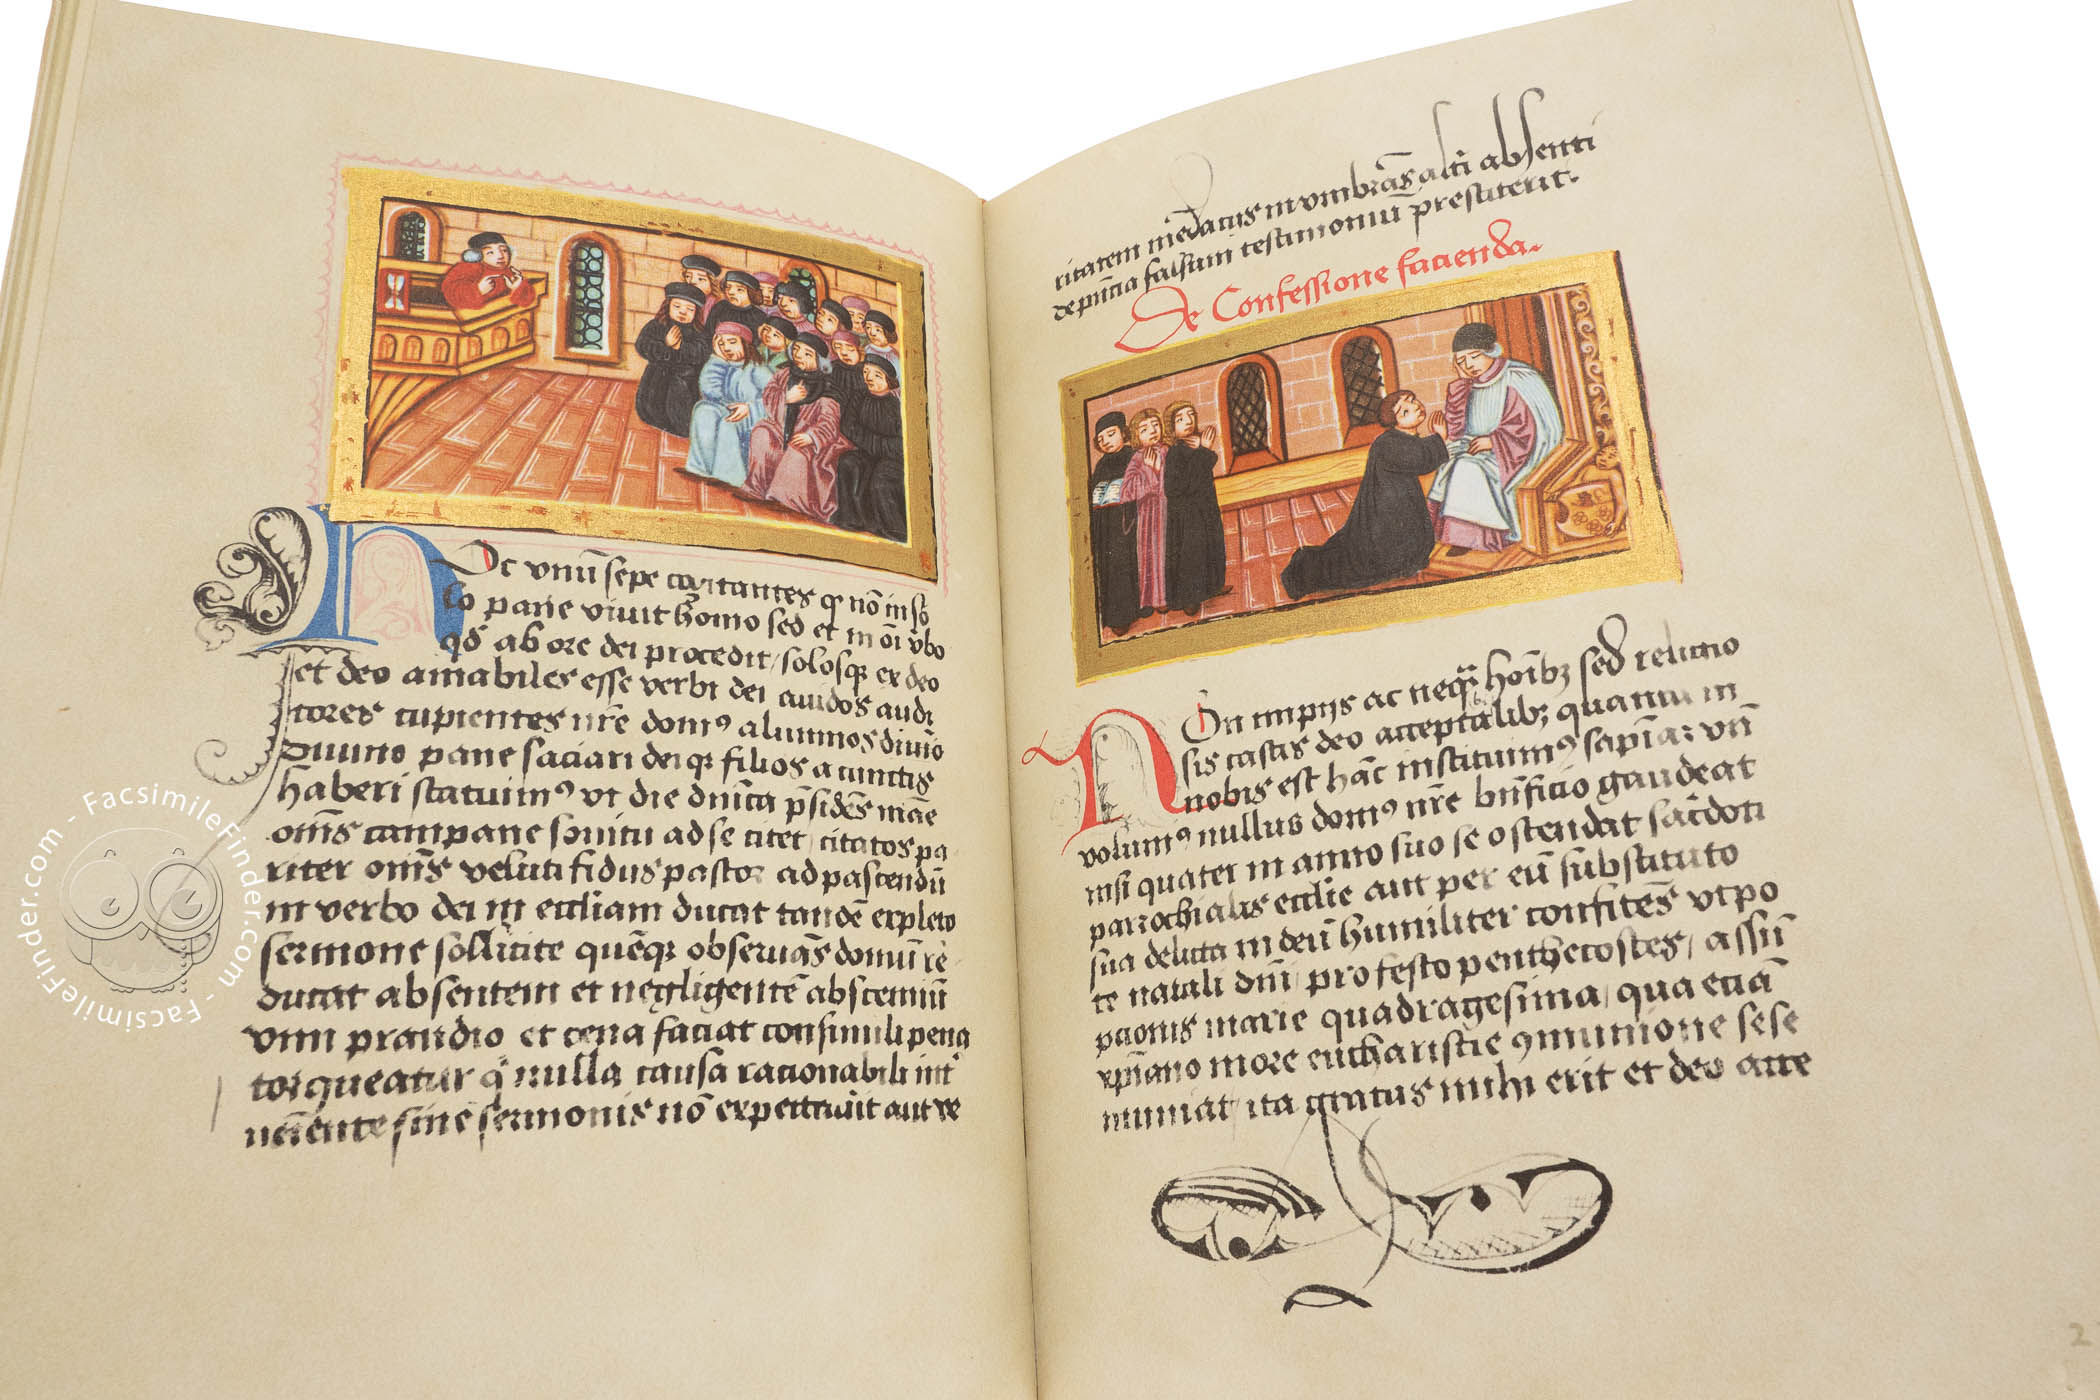 Hoc vnū sepe cogitantes qꝫ nō in so
lo pane viuit homo sed et in oī v̄bo
qd̄ ab ore dei procedit, solosqꝫ ex deo
et deo amabiles esse verbi dei auidos audi
tores cupientes nr̄e domꝰ alumnos diuīo
diuino pane saciari deiqꝫ filios a cunctis
haberi statuimꝰ vt die dn̄ica p̄sidēs māe
om̄s campane sonitu ad se citet, citatos pa
riter om̄s veluti fidus pastor ad pascendū
in verbo dei in eccliam ducat tandē expleto
sermone sollicite quēqꝫ obseruās domū re
ducat absentem et negligentē abstemiū
vini prandio et cena faciat consimili pena
torqueatur qui nulla causa rationabili int̄
ueniente finē sermonis nō expectauit aut ve
ritatem mēdatijs inumbrās alti absenti
de pn̄cia falsum testimoniū prestiterit.
De Confessione facienda.
Non impijs ac neqꝫ hoībꝫ sed religio
sis castis deo acceptalibꝫ quamuis in
nobis est hāc instituimꝰ sapīaꝫ vn̄
volumꝰ nullus domꝰ nr̄e bn̄ficio gaudeat
nisi quater in anno suo se ostendat sac̄doti
parrochialis ecclie aut per eū substituto
sua delicta in deū humiliter confitēs vtpo
te natali dn̄i, pro festo penthecostes, assū
pcionis marie quadragesima, qua etiā
xp̄iano more eucharistie ꝯmunione sese
muniat, ita gratus mihi erit et deo acce
FacsimileFinder.com - FacsimileFinder.com - FacsimileFinder.com
2